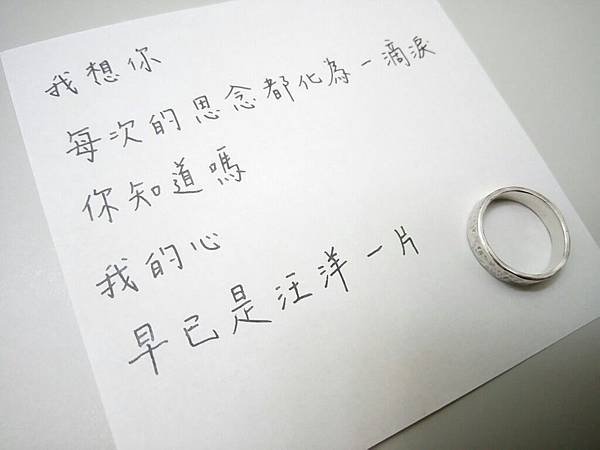 我想你
每次的思念都化為一滴淚
你知道嗎
我的心
早已是汪洋一片